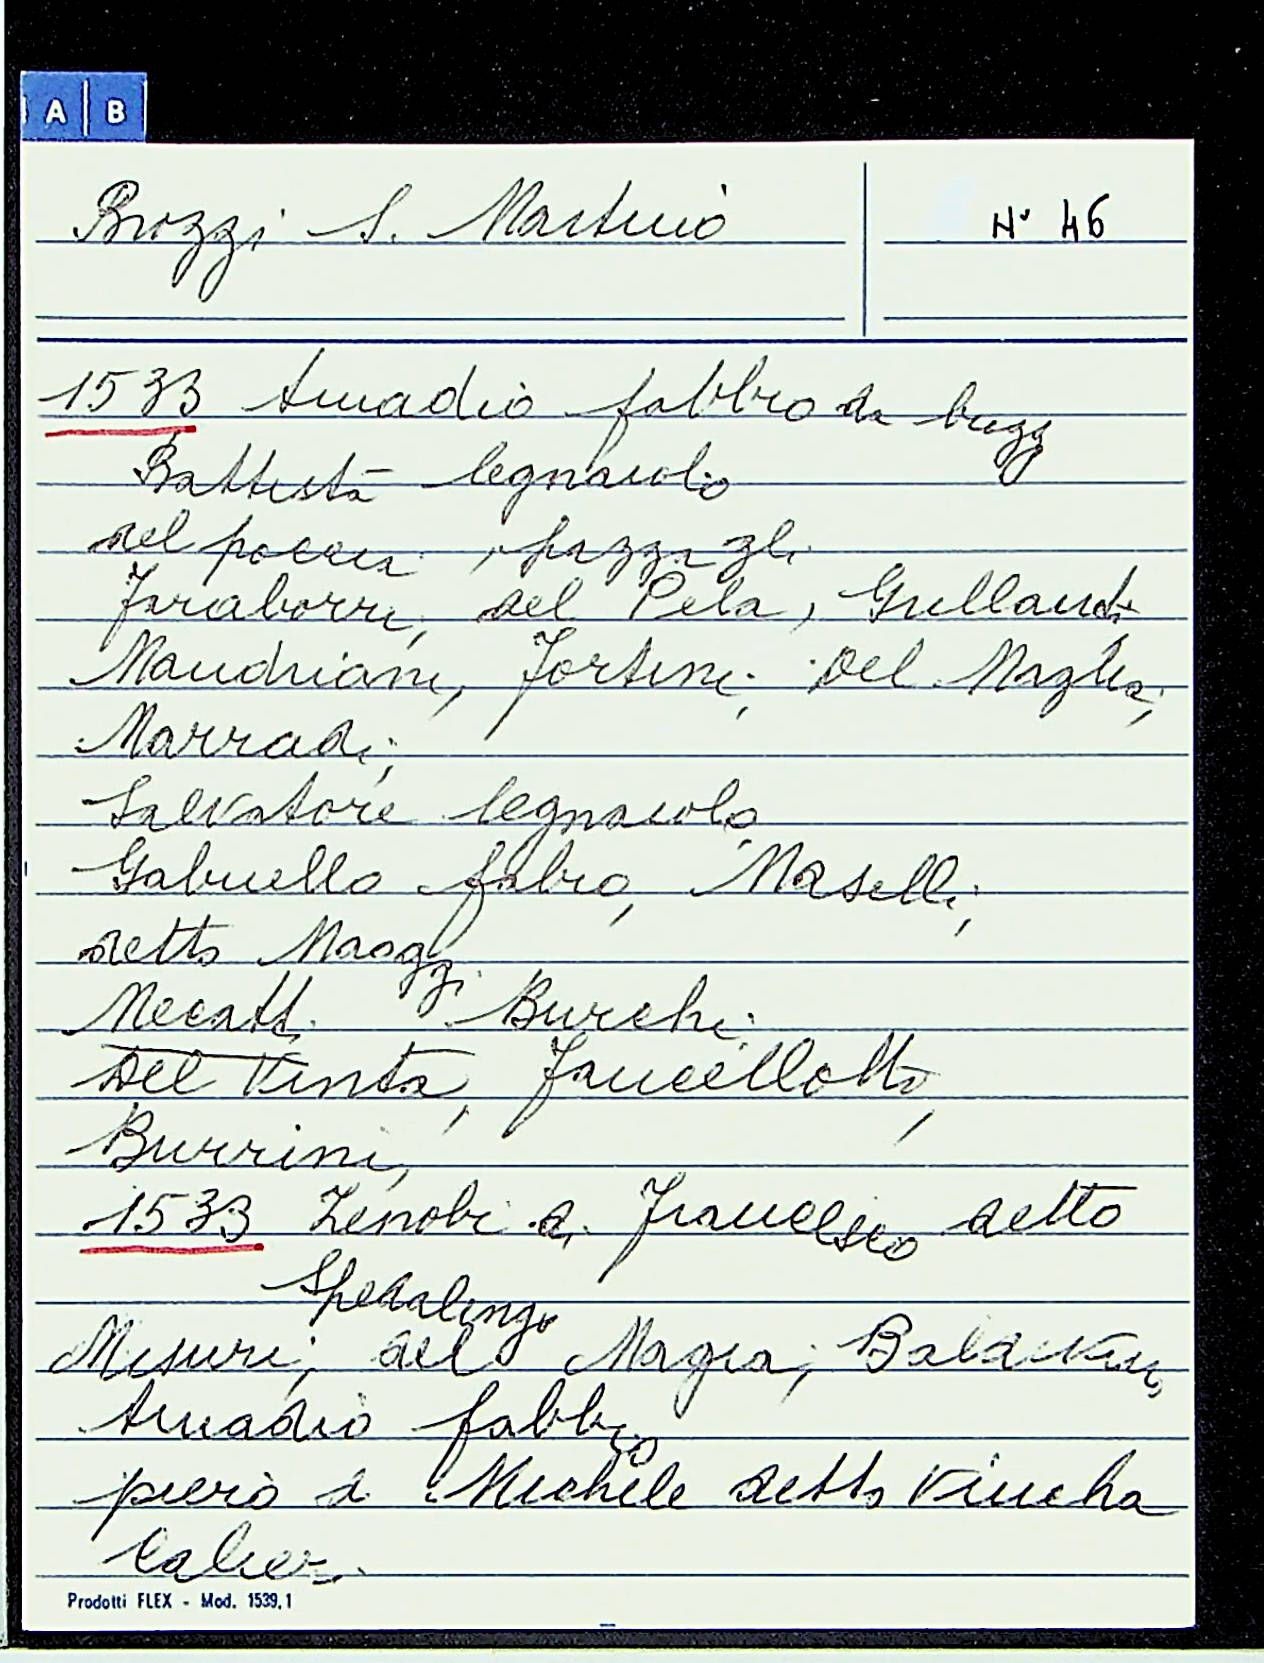 A B
Brozzi S. Martino
N° 46
1533 Amadio fabbro da
Battista legnaiolo
del pazzagli
del Pela, Grillandi
Mandriani, Fortini; Del Maglia;
Marradi;
Salvatore legnaiolo
Gabriello fabro, Maselli;
detto
Necatti Burchi
Del Vinta,
Burrini,
1533 Zenobi di Francesco detto
Spedalingo
Misuri; del Magia; Baldovini,
Amadio fabbro
piero di Michele detto
Prodotti FLEX - Mod. 1539,1